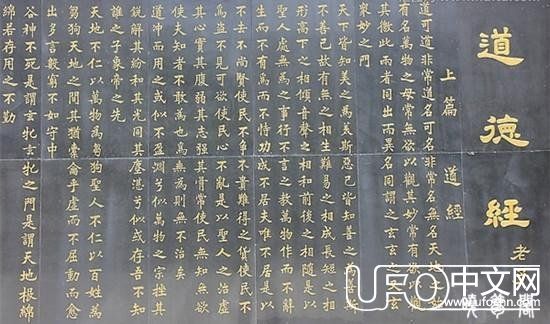 道德經
老
上篇 道經
道可道非常道名可名非常名無名天地之始
有名萬物之母常無欲以觀其妙常有欲以觀
其徼此兩者同出而異名同謂之玄玄之又玄
眾妙之門
天下皆知美之為美斯惡已皆知善之為善斯
不善已故有無之相生難易之相成長短之相
形高下之相傾音聲之相和前後之相隨是以
聖人處無為之事行不言之教萬物作而不辭
生而不有為而不恃功成不居夫唯不居是以
不去不尚賢使民不爭不貴難得之貨使民不
為盜不見可欲使民心不亂是以聖人之治虛
其心實其腹弱其志強其骨常使民無知無欲
使夫知者不敢為也為無為則無不治矣
道沖而用之或似不盈淵兮似萬物之宗挫其
銳解其紛和其光同其塵湛兮似或存吾不知
誰之子象帝之先
天地不仁以萬物為芻狗聖人不仁以百姓為
芻狗天地之間其猶橐籥乎虛而不屈動而愈
出多言數窮不如守中
谷神不死是謂玄牝玄牝之門是謂天地根綿
綿若存用之不勤
UFO中文网